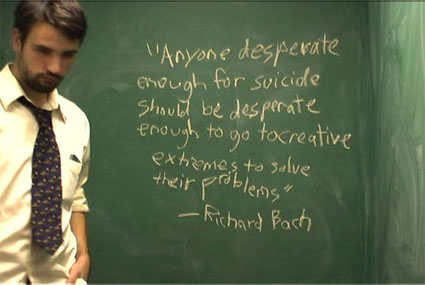 "Anyone desperate
enough for suicide
should be desperate
enough to go to creative
extremes to solve
their problems"
— Richard Bach